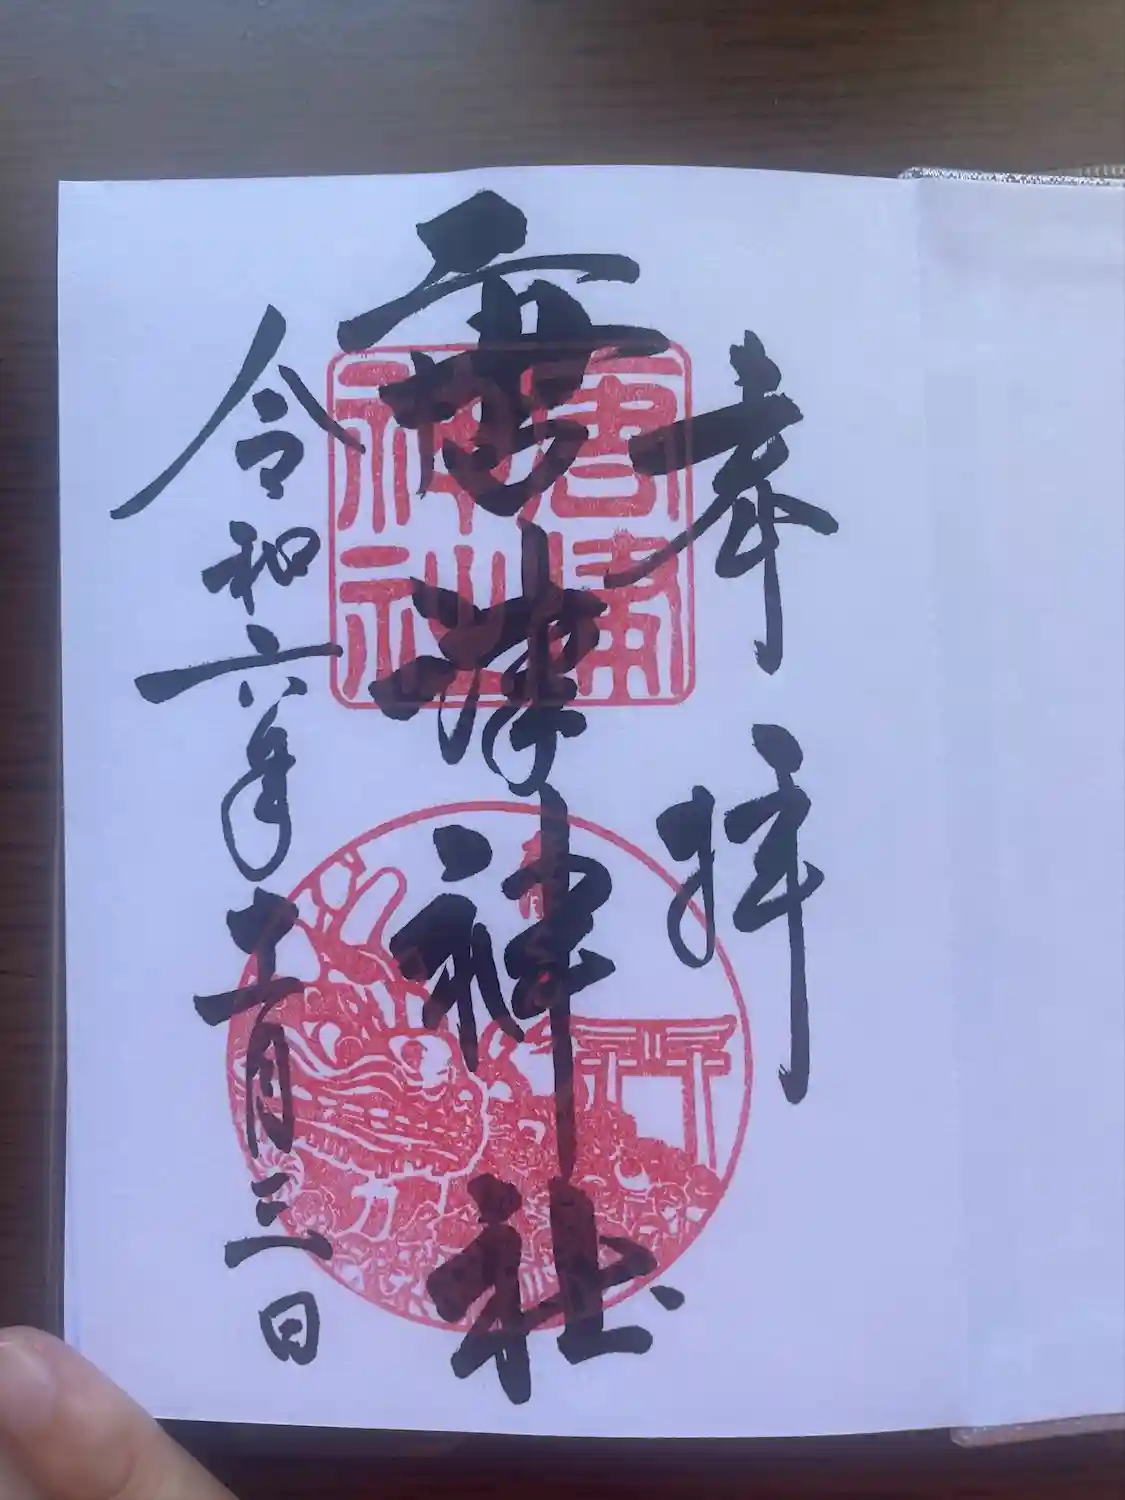 奉拝
唐津神社
令和六年十一月三日
唐津
神社